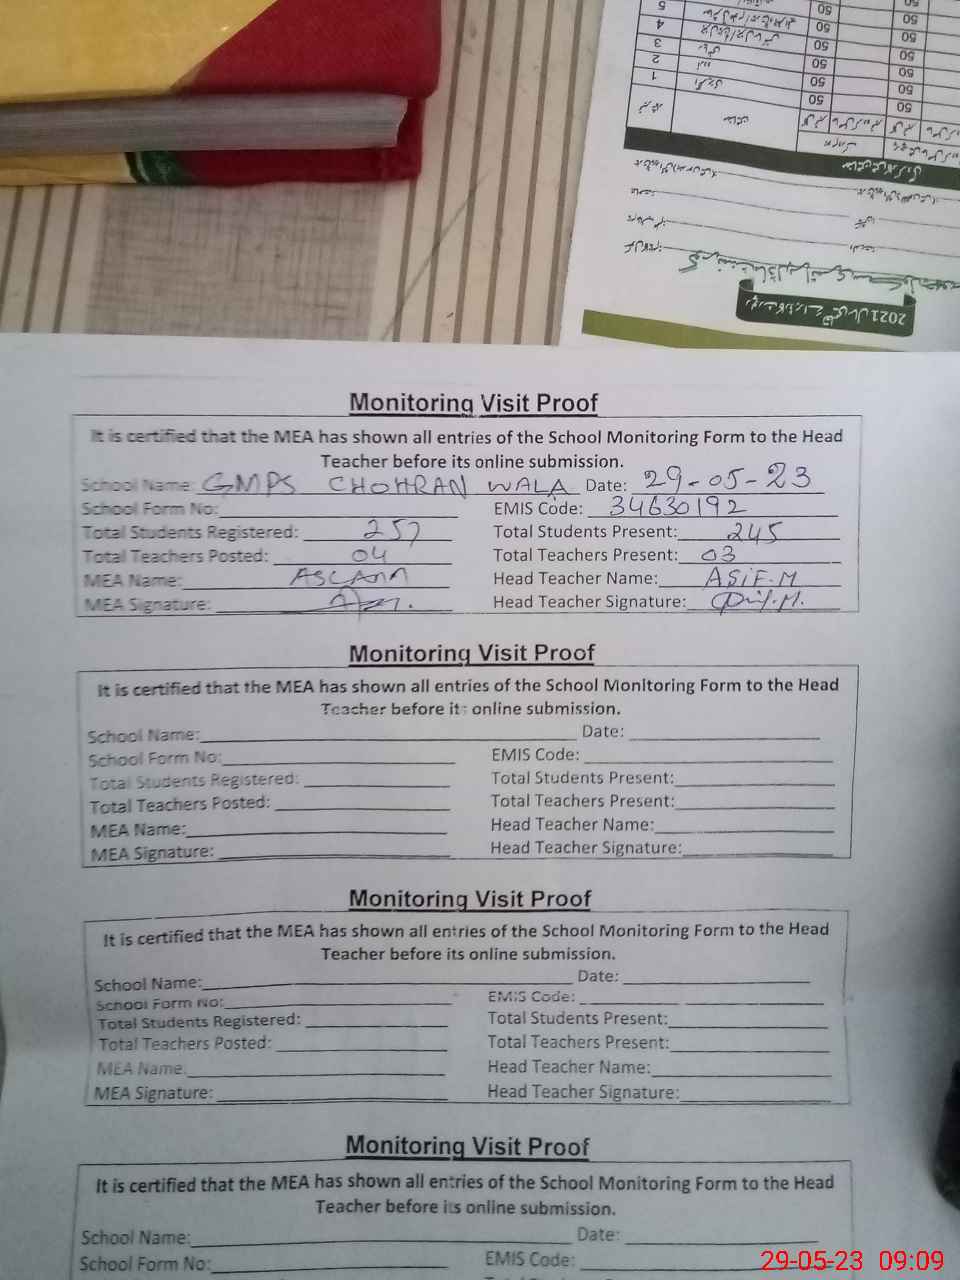 5
50
50
4
50
50
3
50
50
2
50
50
1
50
50
50
50
2021
Monitoring Visit Proof
It is certified that the MEA has shown all entries of the School Monitoring Form to the Head
Teacher before its online submission.
School Name: GMPS CHOHRAN WALA Date: 29-05-23
School Form No: EMIS Code: 34630192
Total Students Registered: 257 Total Students Present: 245
Total Teachers Posted: 04 Total Teachers Present: 03
MEA Name: Head Teacher Name: ASIF.M
MEA Signature: Head Teacher Signature:
Monitoring Visit Proof
It is certified that the MEA has shown all entries of the School Monitoring Form to the Head
Teacher before its online submission.
School Name: Date:
School Form No: EMIS Code:
Total Students Registered: Total Students Present:
Total Teachers Posted: Total Teachers Present:
MEA Name: Head Teacher Name:
MEA Signature: Head Teacher Signature:
Monitoring Visit Proof
It is certified that the MEA has shown all entries of the School Monitoring Form to the Head
Teacher before its online submission.
School Name: Date:
School Form No: EMIS Code:
Total Students Registered: Total Students Present:
Total Teachers Posted: Total Teachers Present:
MEA Name: Head Teacher Name:
MEA Signature: Head Teacher Signature:
Monitoring Visit Proof
It is certified that the MEA has shown all entries of the School Monitoring Form to the Head
Teacher before its online submission.
School Name: Date:
School Form No: EMIS Code:
29-05-23 09:09